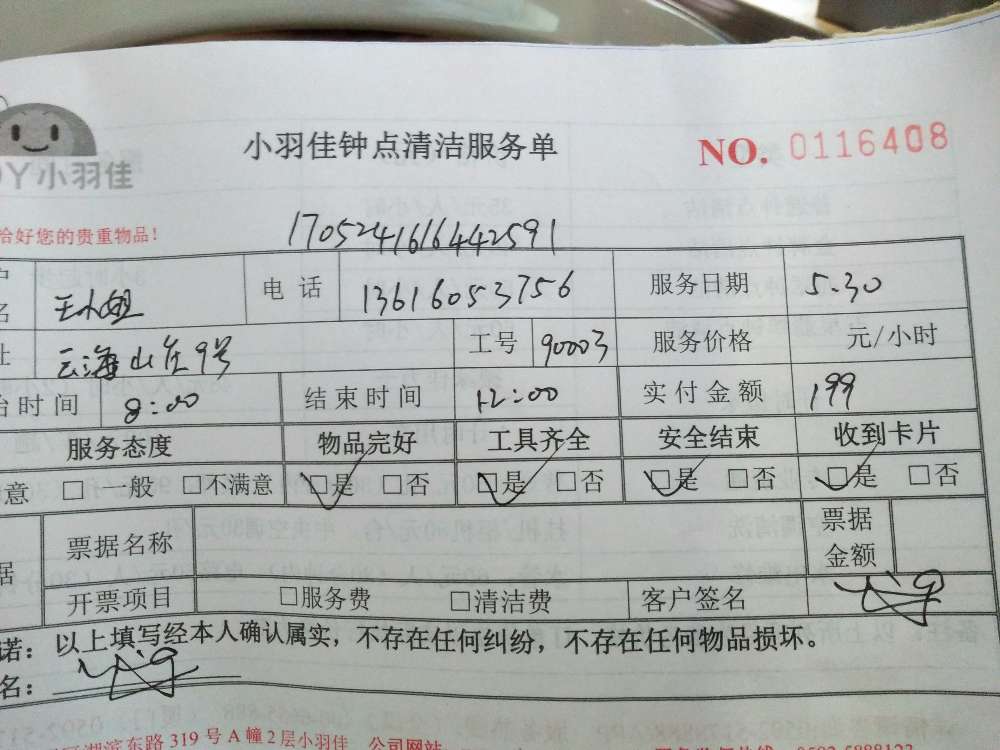 小羽佳钟点清洁服务单
NO. 0116408
Y小羽佳
恰好您的贵重物品!
1705241616442591
户名 王小姐 电话 13616053756 服务日期 5.30
址 云海山庄9号 工号 90003 服务价格 元/小时
始时间 8:00 结束时间 12:00 实付金额 199
服务态度 物品完好 工具齐全 安全结束 收到卡片
意 □ 一般 □不满意 □是 □否 □是 □否 □是 □否 □是 □否
居 票据名称 票据金额
开票项目 □服务费 □清洁费 客户签名
诺: 以上填写经本人确认属实，不存在任何纠纷，不存在任何物品损坏。
名:
湖滨东路 319 号 A 幢 2 层小羽佳 公司网站